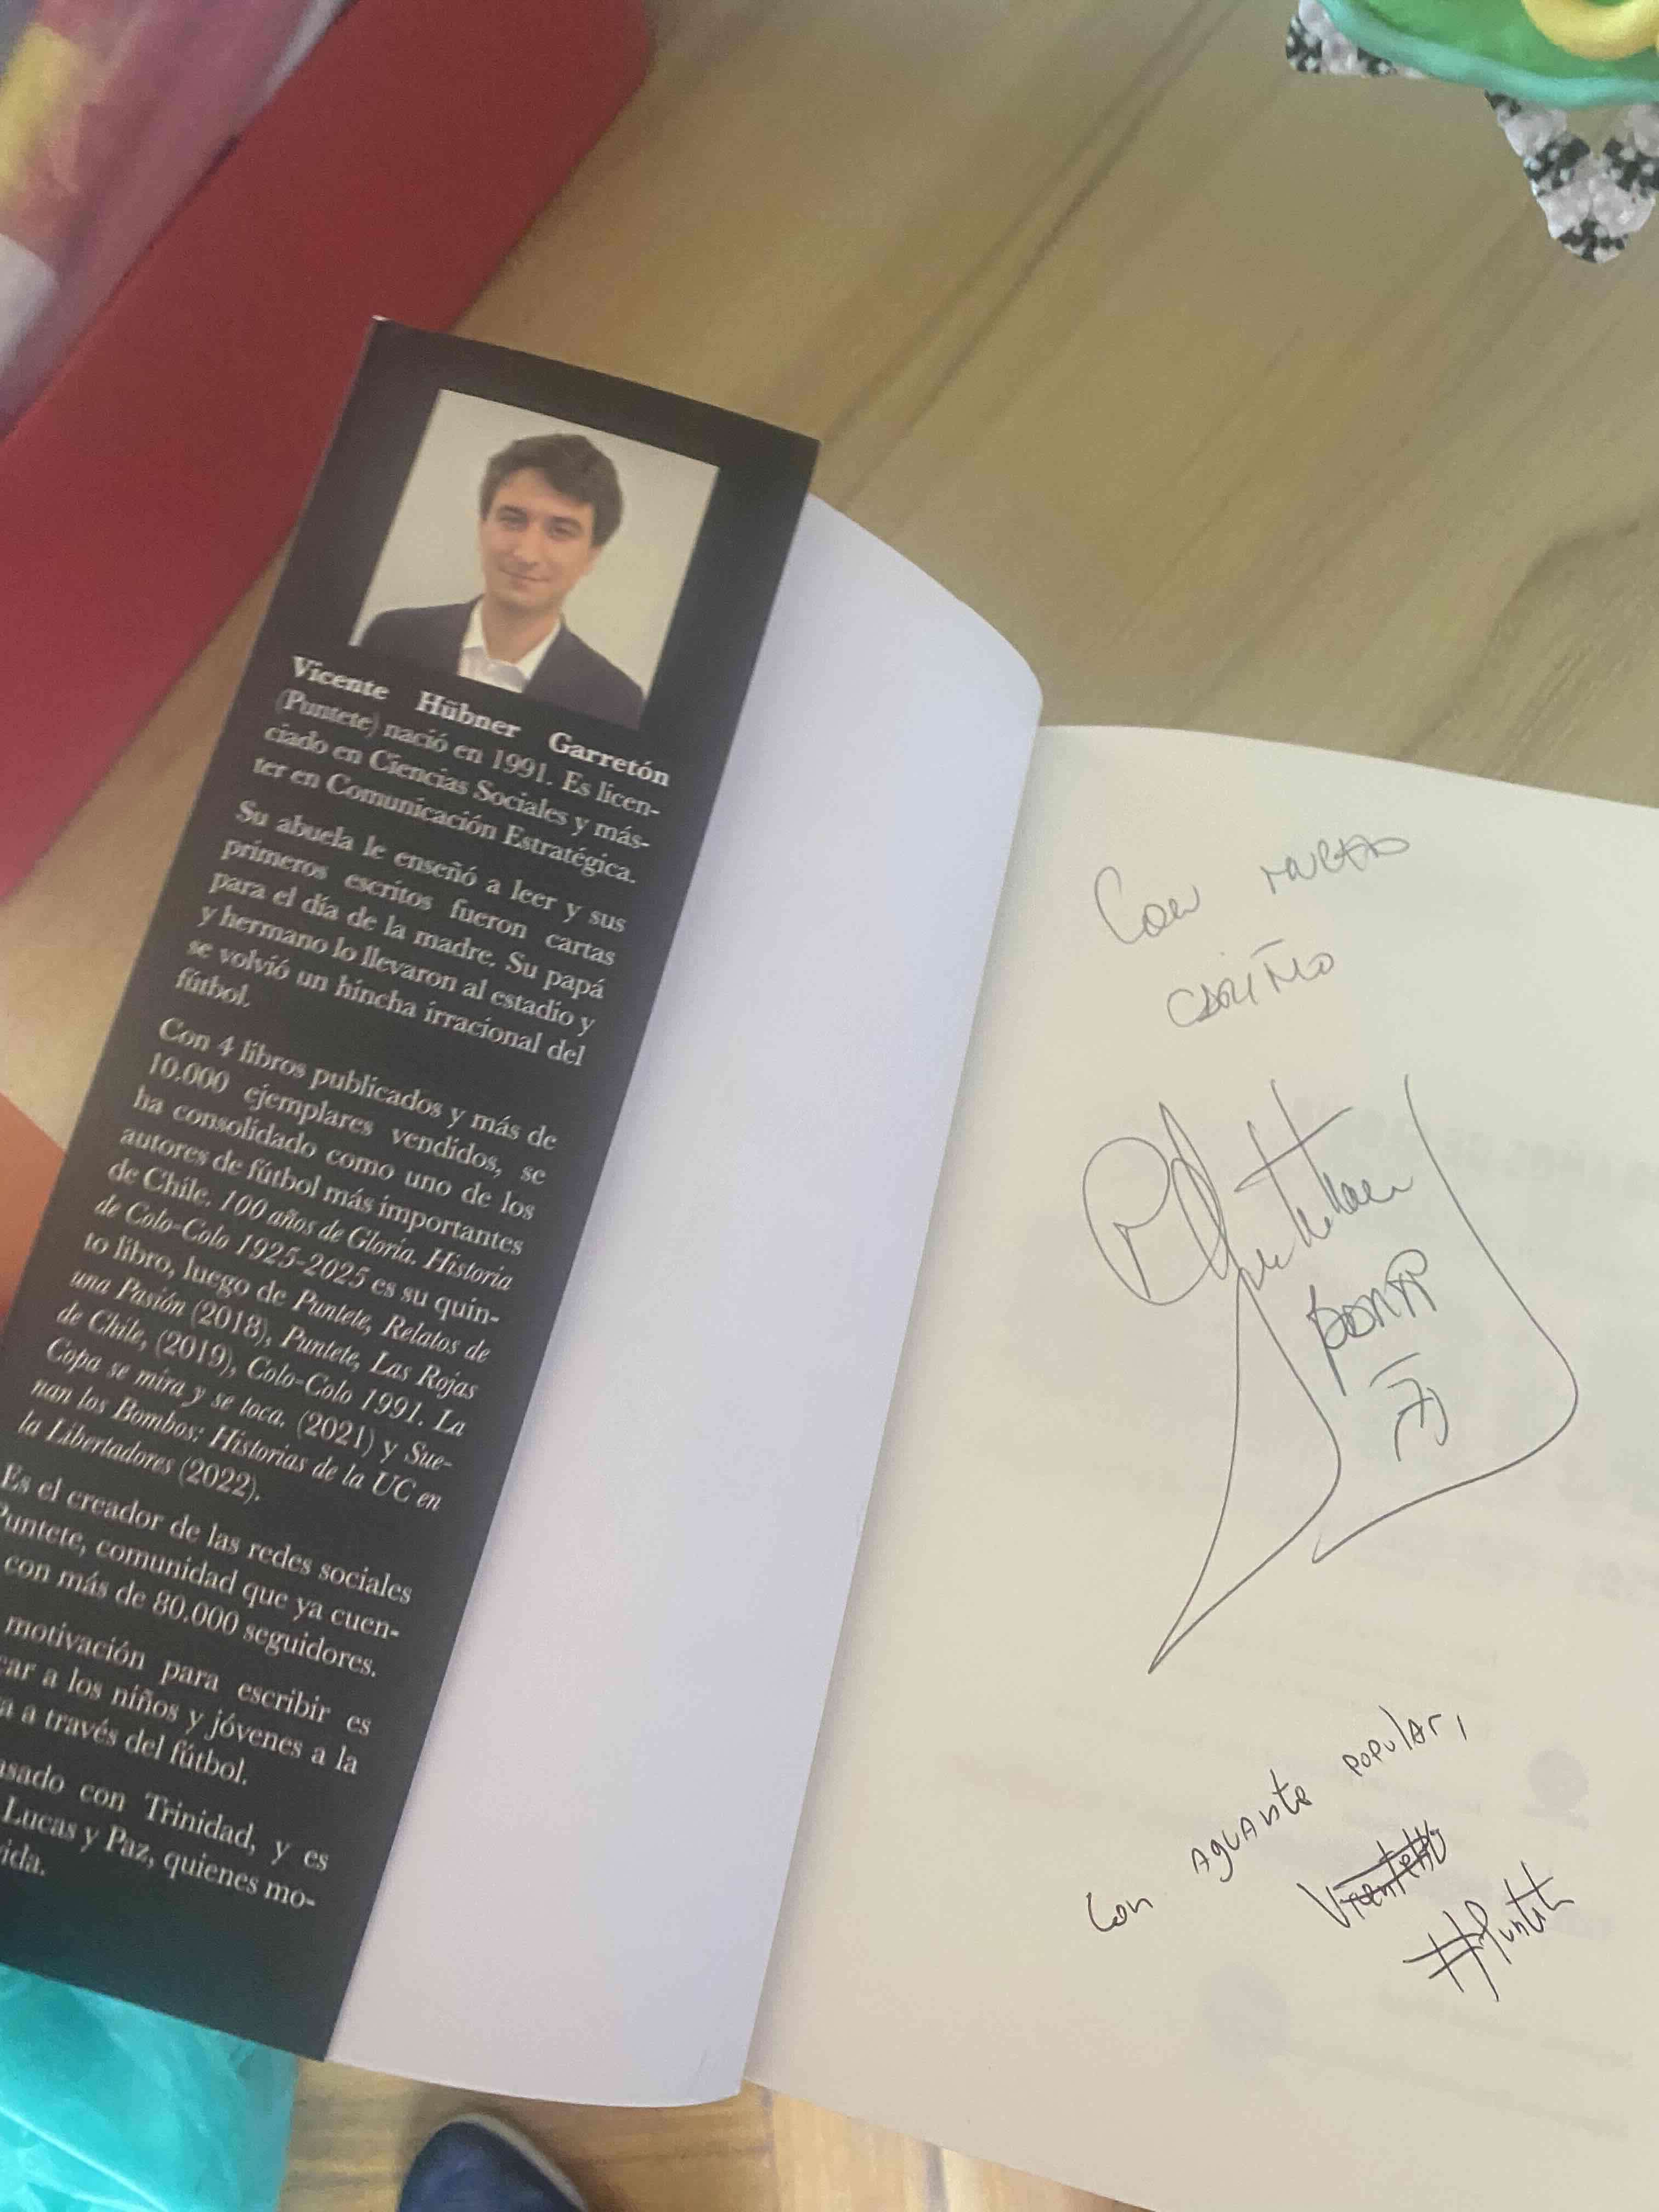 Vicente Hübner Garretón
(Puntete) nació en 1991. Es licen-
ciado en Ciencias Sociales y más-
ter en Comunicación Estratégica.
Su abuela le enseñó a leer y sus
primeros escritos fueron cartas
para el día de la madre. Su papá
y hermano lo llevaron al estadio y
se volvió un hincha irracional del
fútbol.
Con 4 libros publicados y más de
10.000 ejemplares vendidos, se
ha consolidado como uno de los
autores de fútbol más importantes
de Chile. 100 años de Gloria. Historia
de Colo-Colo 1925-2025 es su quin-
to libro, luego de Puntete, Relatos de
una Pasión (2018), Puntete, Las Rojas
de Chile, (2019), Colo-Colo 1991. La
Copa se mira y se toca. (2021) y Sue-
nan los Bombos: Historias de la UC en
la Libertadores (2022).
Es el creador de las redes sociales
Puntete, comunidad que ya cuen-
con más de 80.000 seguidores.
motivación para escribir es
car a los niños y jóvenes a la
a a través del fútbol.
asado con Trinidad, y es
Lucas y Paz, quienes mo-
ida.
Con mucho
cariño
Con aguante popular,
Vicente H
#Puntete